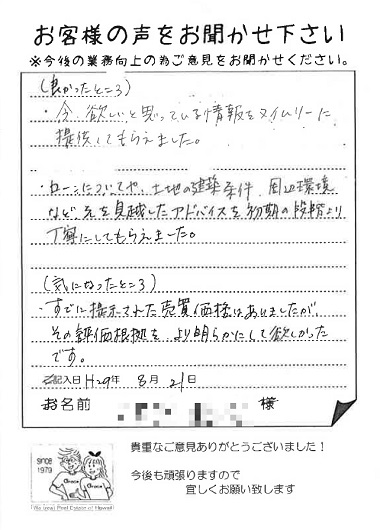 お客様の声をお聞かせ下さい
※今後の業務向上の為ご意見をお聞かせください。
(良かったところ)
・今、欲しいと思っている情報をタイムリーに
提供してもらえました。
・ローンについてや、土地の建築条件、周辺環境
など、先を見越したアドバイスを初期の段階より
丁寧にしてもらえました。
(気になったところ)
・すでに提示された売買価格はありましたが、
その評価根拠を、より明らかにして欲しかった
です。
ご記入日 H29年 8月 21日
お名前 様
since
1979
Grace
Grace
貴重なご意見ありがとうございました!
今後も頑張りますので
宜しくお願い致します